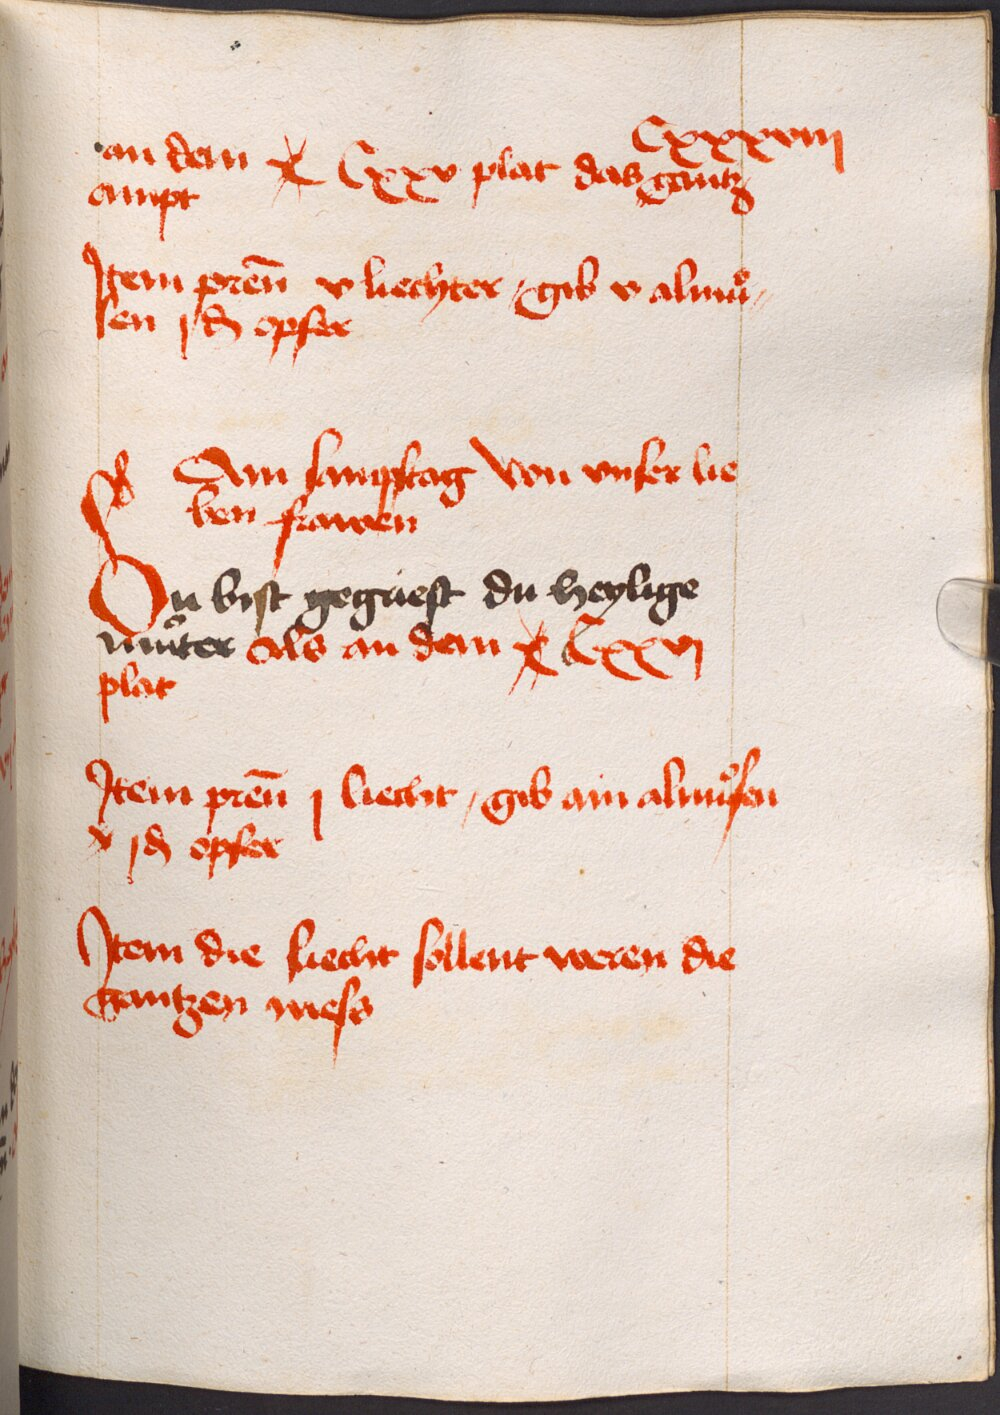 Cxxxviij
an dem Cxxv plat das gantz
ampt
Item pren̄ v liechter / gib v almů-
sen j d opfer
Am sampstag Von vnser lie
ben frawen
Du bist gegriest du heylige
můter als an dem Cxxvj
plat
Item pren̄ j liecht / gib ain almůsen
v j d opfer
Item die liecht sollent weren die
gantzen mess